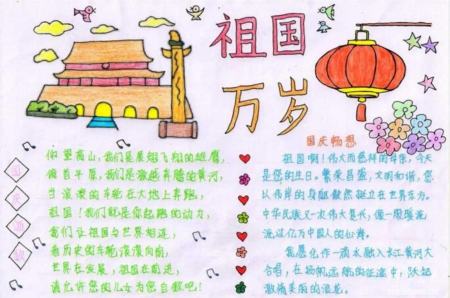 祖国
万岁
仰望高山,我们是展翅飞翔的雄鹰,
俯首平原,我们是激越奔腾的黄河,
当滚滚的车轮在大地上奔跑,
祖国!我们就是你起跑的动力,
我们让祖国与世界相连,
看历史的车轮滚滚向前,
世界在发展,祖国在前进,
请允许您的儿女为您自豪吧!
国庆畅想
祖国啊!伟大而慈祥的母亲,今天
是您的生日。繁荣昌盛,文明和谐,您
以伟岸的身躯巍然挺立在世界东方。
中华民族又一次伟大复兴,像一股暖流
流遍亿万中国人的心房。
我愿化作一滴水融入长江黄河大
合唱,在扬帆远航的征途中,跃起
激情美丽的浪花。